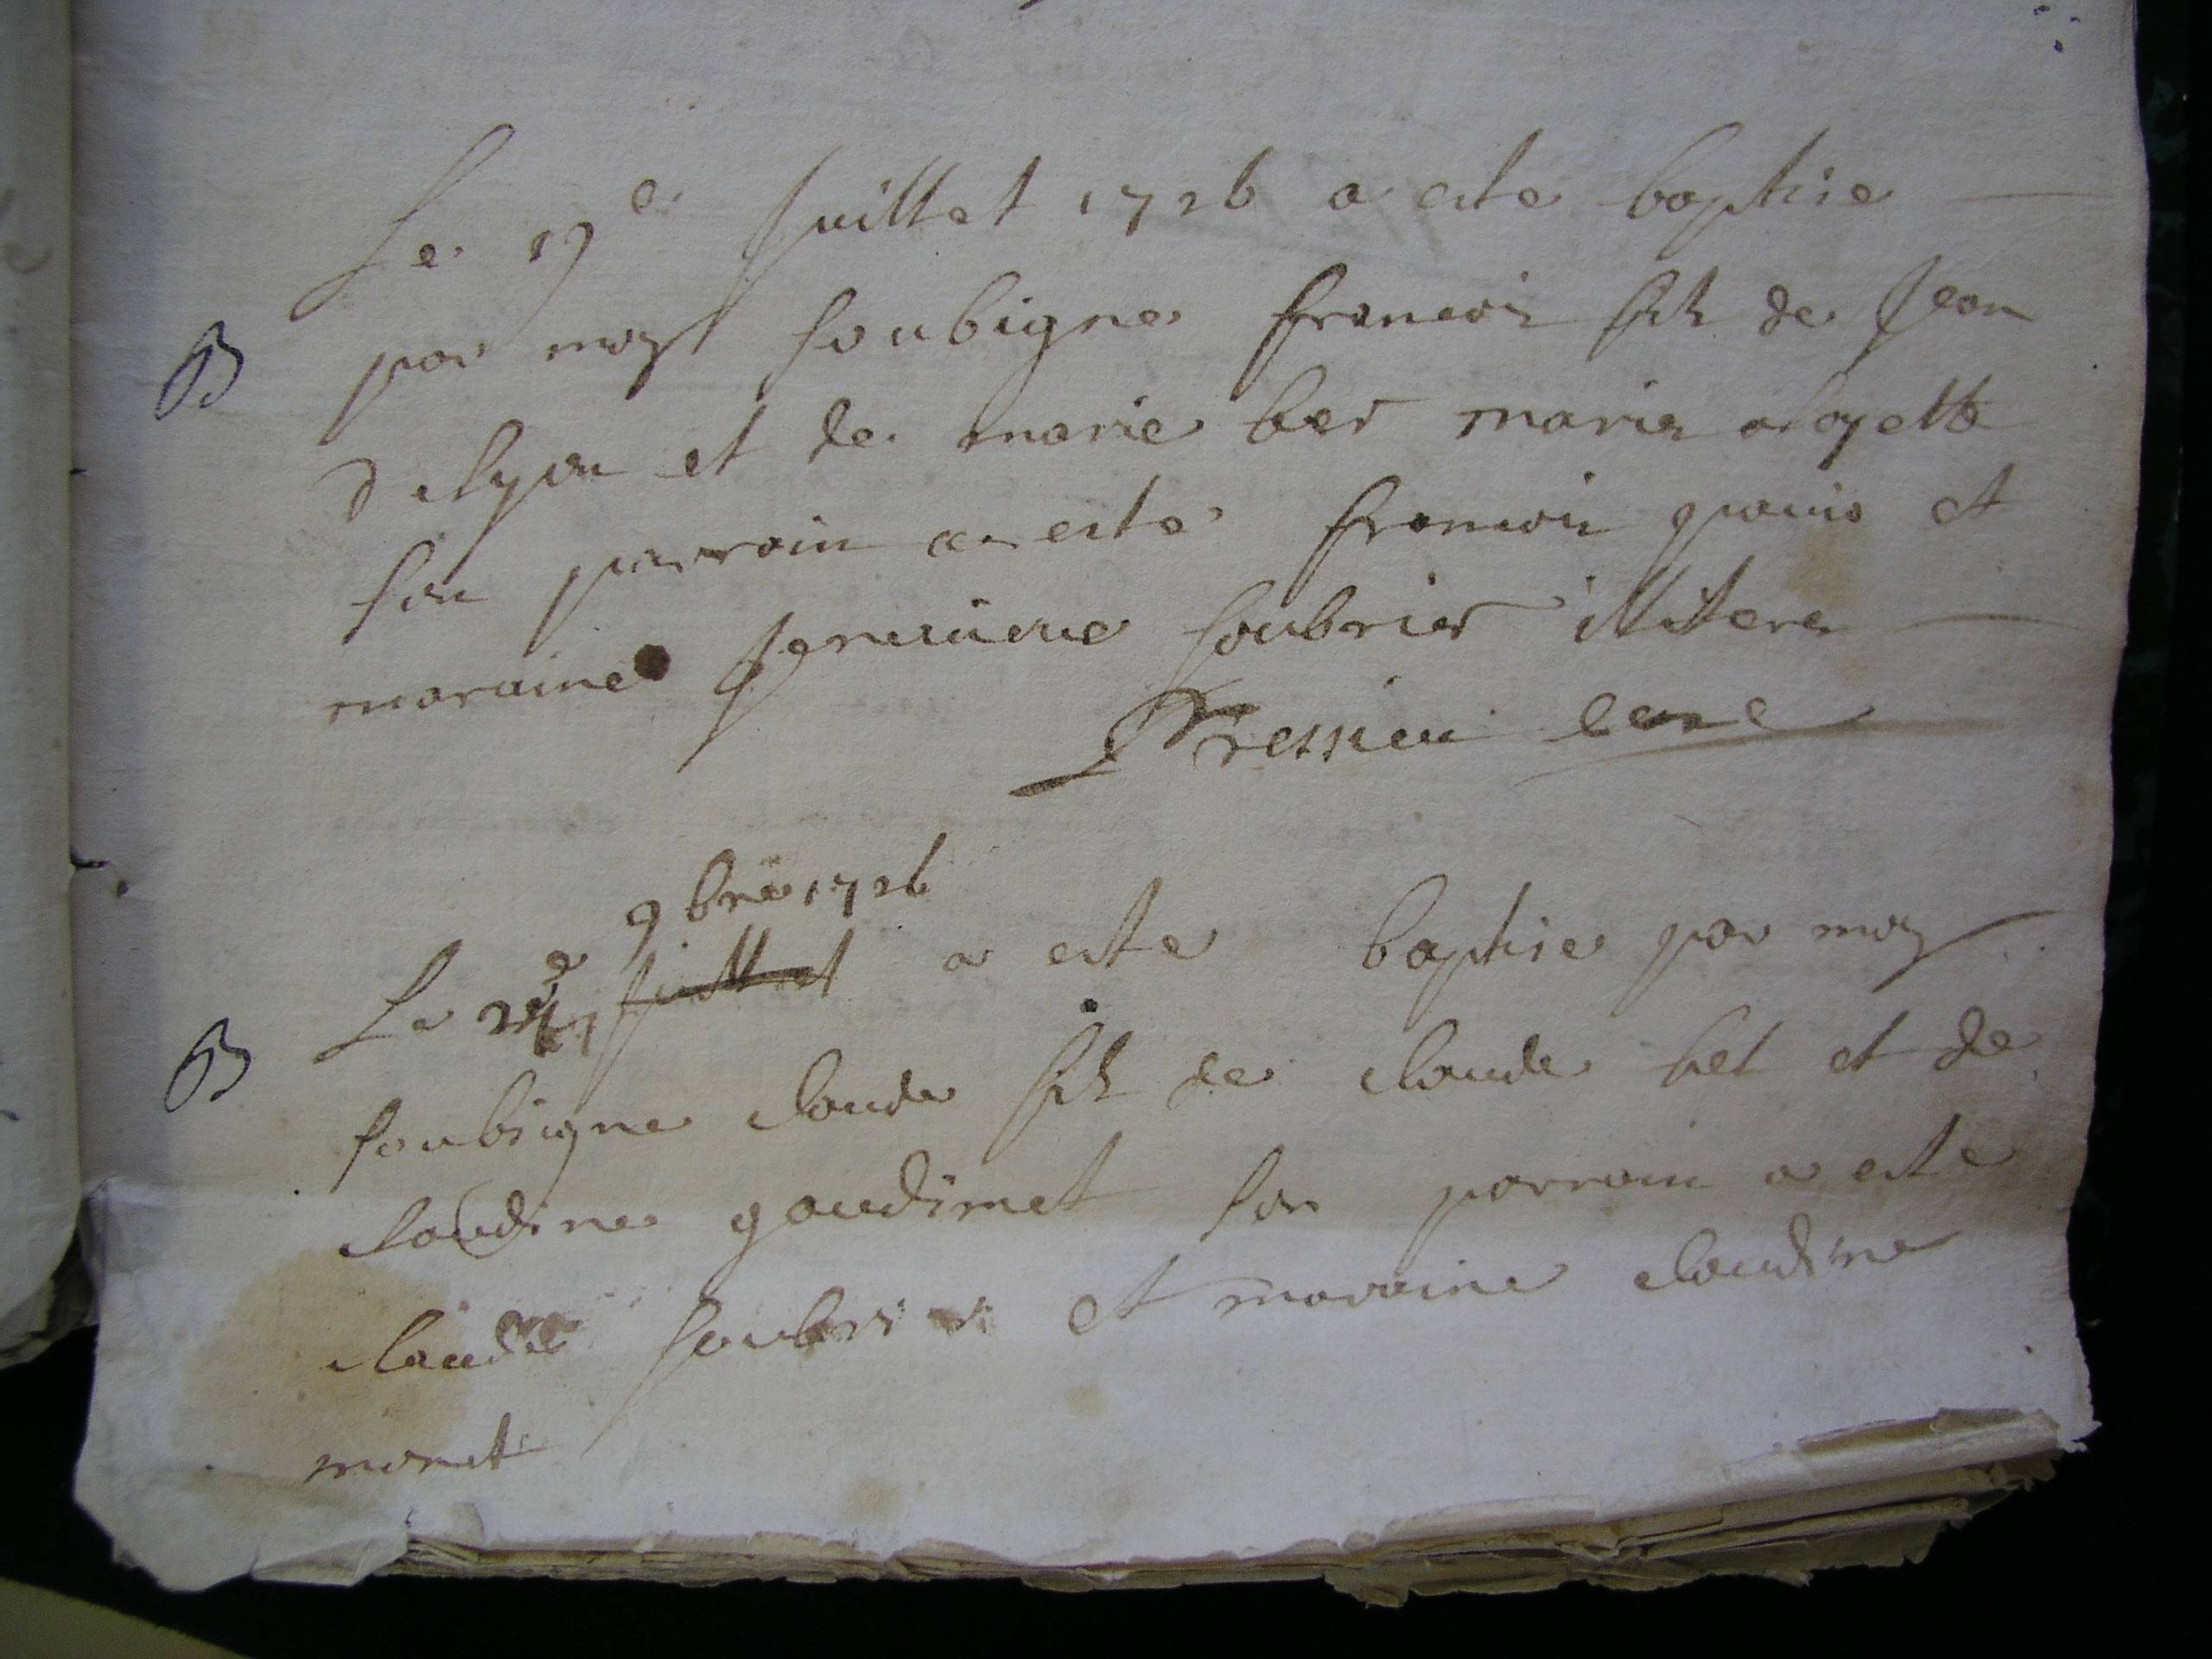 Le 19e Juillet 1726 a este baptise
B par moy soubigne francois fils de Jean
delyon et de marie ber maries
son parrain a este francois et
maraine soubrier illiteres
Pressieu cure
9bre 1726
Le Juillet a este baptise par moy
B soubsigne claude fils de claude et de
claudine gaudimet son parrain a este
claude soubrier et maraine claudine
moret